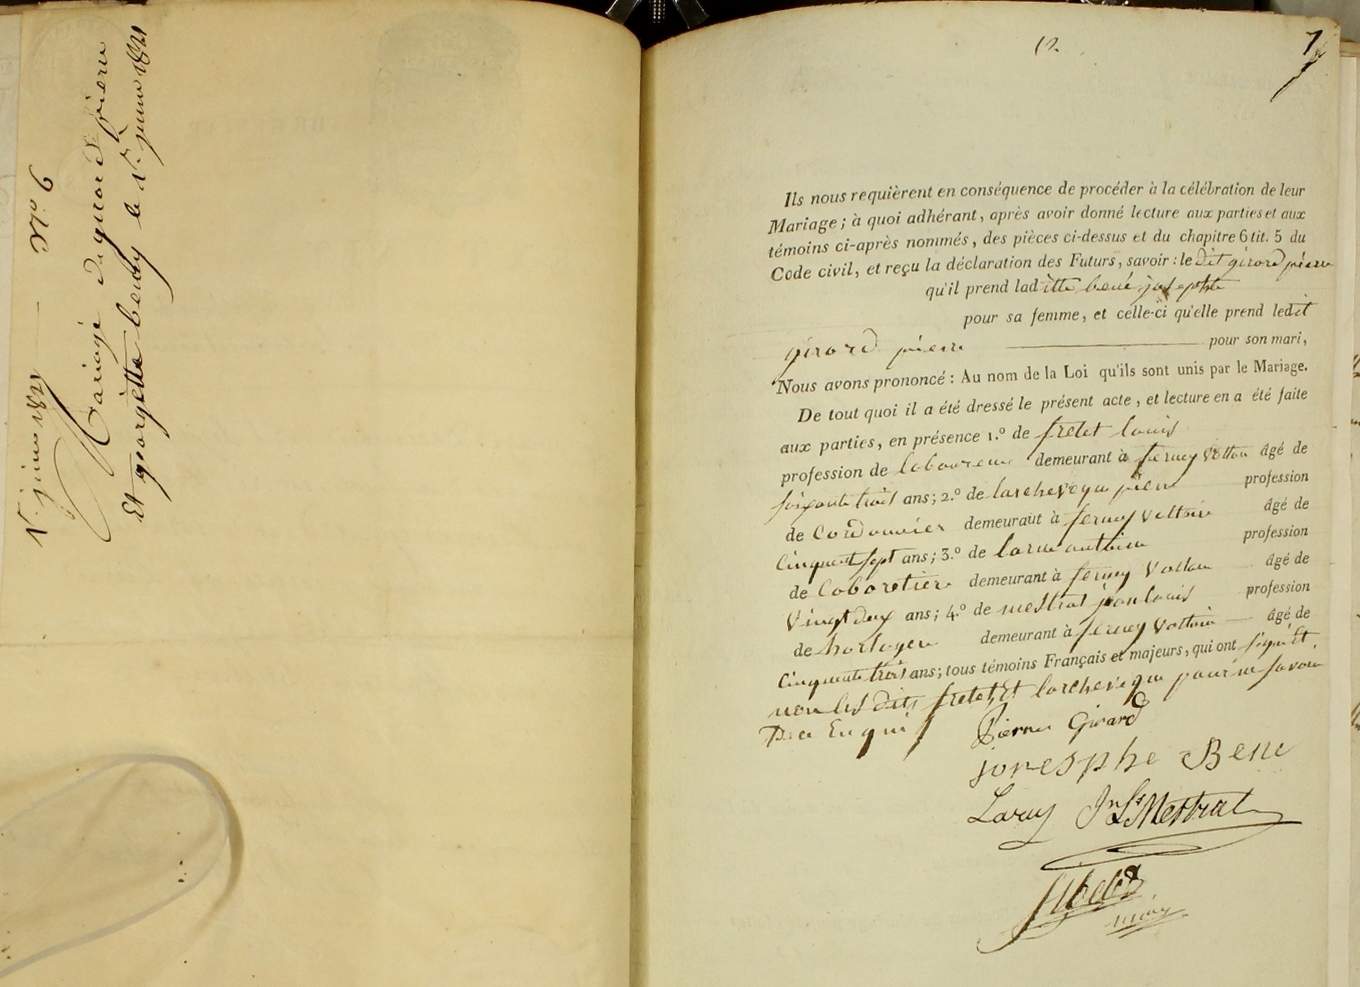 N° 6
Mariage de girord pierre
Et georgette
12.
7
Ils nous requièrent en conséquence de procéder à la célébration de leur
Mariage; à quoi adhérant, après avoir donné lecture aux parties et aux
témoins ci-après nommés, des pièces ci-dessus et du chapitre 6 tit. 5 du
Code civil, et reçu la déclaration des Futurs, savoir : le dit girord pierre
qu'il prend laditte bené josephte
pour sa femme, et celle-ci qu'elle prend ledit
girord pierre pour son mari,
Nous avons prononcé : Au nom de la Loi qu'ils sont unis par le Mariage.
De tout quoi il a été dressé le présent acte, et lecture en a été faite
aux parties, en présence 1.° de fretet louis
profession de laboureur demeurant à ferney voltaire âgé de
soixante trois ans; 2.° de larcheveque pierre profession
de Cordonnier demeurant à ferney voltaire âgé de
Cinquante sept ans; 3.° de antoine profession
de Cabaretier demeurant à ferney voltaire âgé de
Vingt deux ans; 4.° de mestral jean louis profession
de horloger demeurant à ferney voltaire âgé de
Cinquante trois ans; tous témoins Français et majeurs, qui ont signé Et
non les dits fretet Et larcheveque pour ne savoir
De ce Enquis
Pierre Girard
joresphe Bene
Jn Ls Mestral